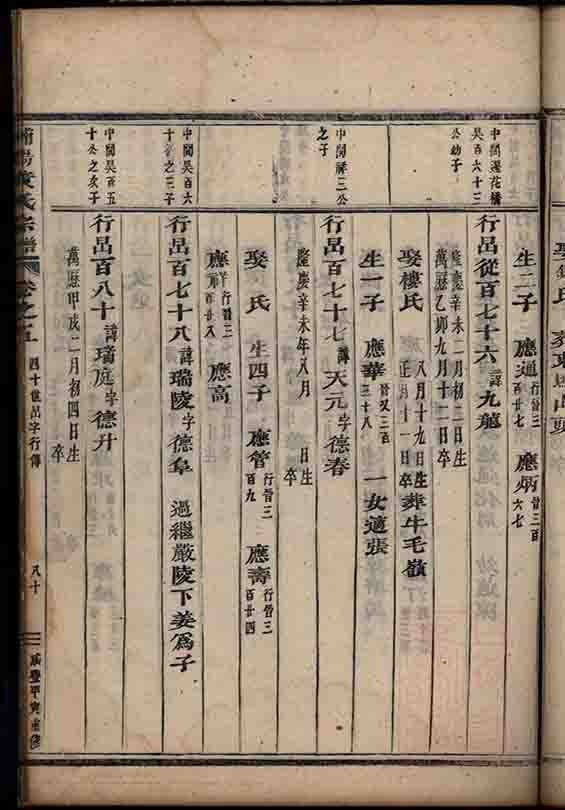 生二子 應通行晉三百廿七 應炳晉三百六七
中閣蓮花橋吴百六十三公幼子
行呂從百七十六諱九龍
隆慶辛未二月初二日生
萬歷乙卯九月十二日卒
娶樓氏 八月十九日生 正月十一日卒 葬牛毛嶺
生一子 應華晉又三百三十八 一女適張
中閣祥三公之子
行呂百七十七諱天元字德春
隆慶辛未年八月 日生 卒
娶 氏 生四子 應管行晉三百九 應壽行晉三百廿四
應 行晉三百廿八 應高
中閣吴百六十 之三子
行呂百七十八諱瑞陵字德阜 過繼嚴陵下姜爲子
中閣吴百五十公之次子
行呂百八十諱瑞庭字德升
萬歷甲戌二月初四日生 卒
氏宗譜 卷之五 四十世呂字行傳 八十 咸豐甲寅重修